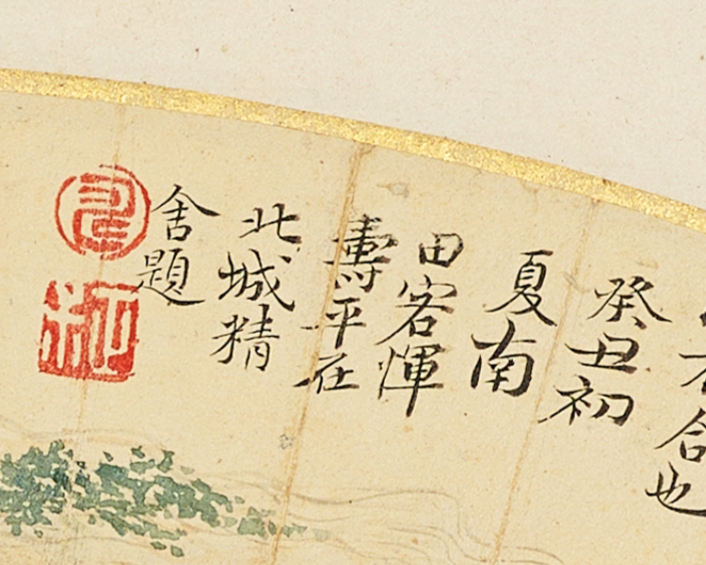 合也
癸丑初
夏南
田客惲
壽平在
北城精
舍題